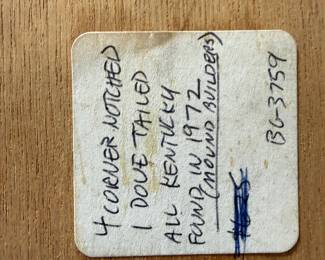 4 CORNER NOTCHED
1 DOVE TAILED
ALL KENTUCKY
FOUND IN 1972
(MOUND BUILDERS)
BG-3759